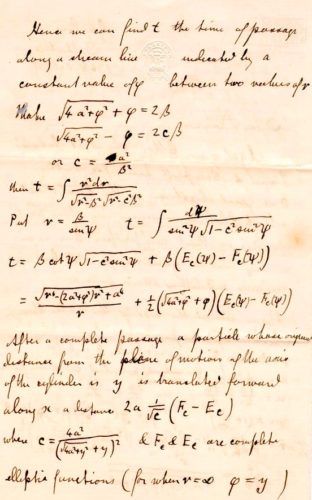 Hence we can find t the time of passage
along a stream line indicated by a
constant value of φ between two values of r
Make √(4a²+φ²) + φ = 2β
√(4a²+φ²) - φ = 2cβ
or c = a²/β²
then t = ∫ r²dr / √(r²-β²) √(r²-c²β²)
Put r = β/sin ψ t = ∫ dψ / sin²ψ √(1-c²sin²ψ)
t = β cot ψ √(1-c²sin²ψ) + β (E_c(ψ) - F_c(ψ))
= √(r⁴-(2a²+φ²)r²+a⁴) / r + ½(√(4a²+φ²) + φ)(E_c(ψ) - F_c(ψ))
After a complete passage a particle whose original
distance from the plane of motion of the axis
of the cylinder is y is translated forward
along x a distance 2a 1/√c (F_c - E_c)
where c = 4a²/(√(4a²+y²) + y)² & F_c & E_c are complete
elliptic functions (for when r=∞ φ = y)